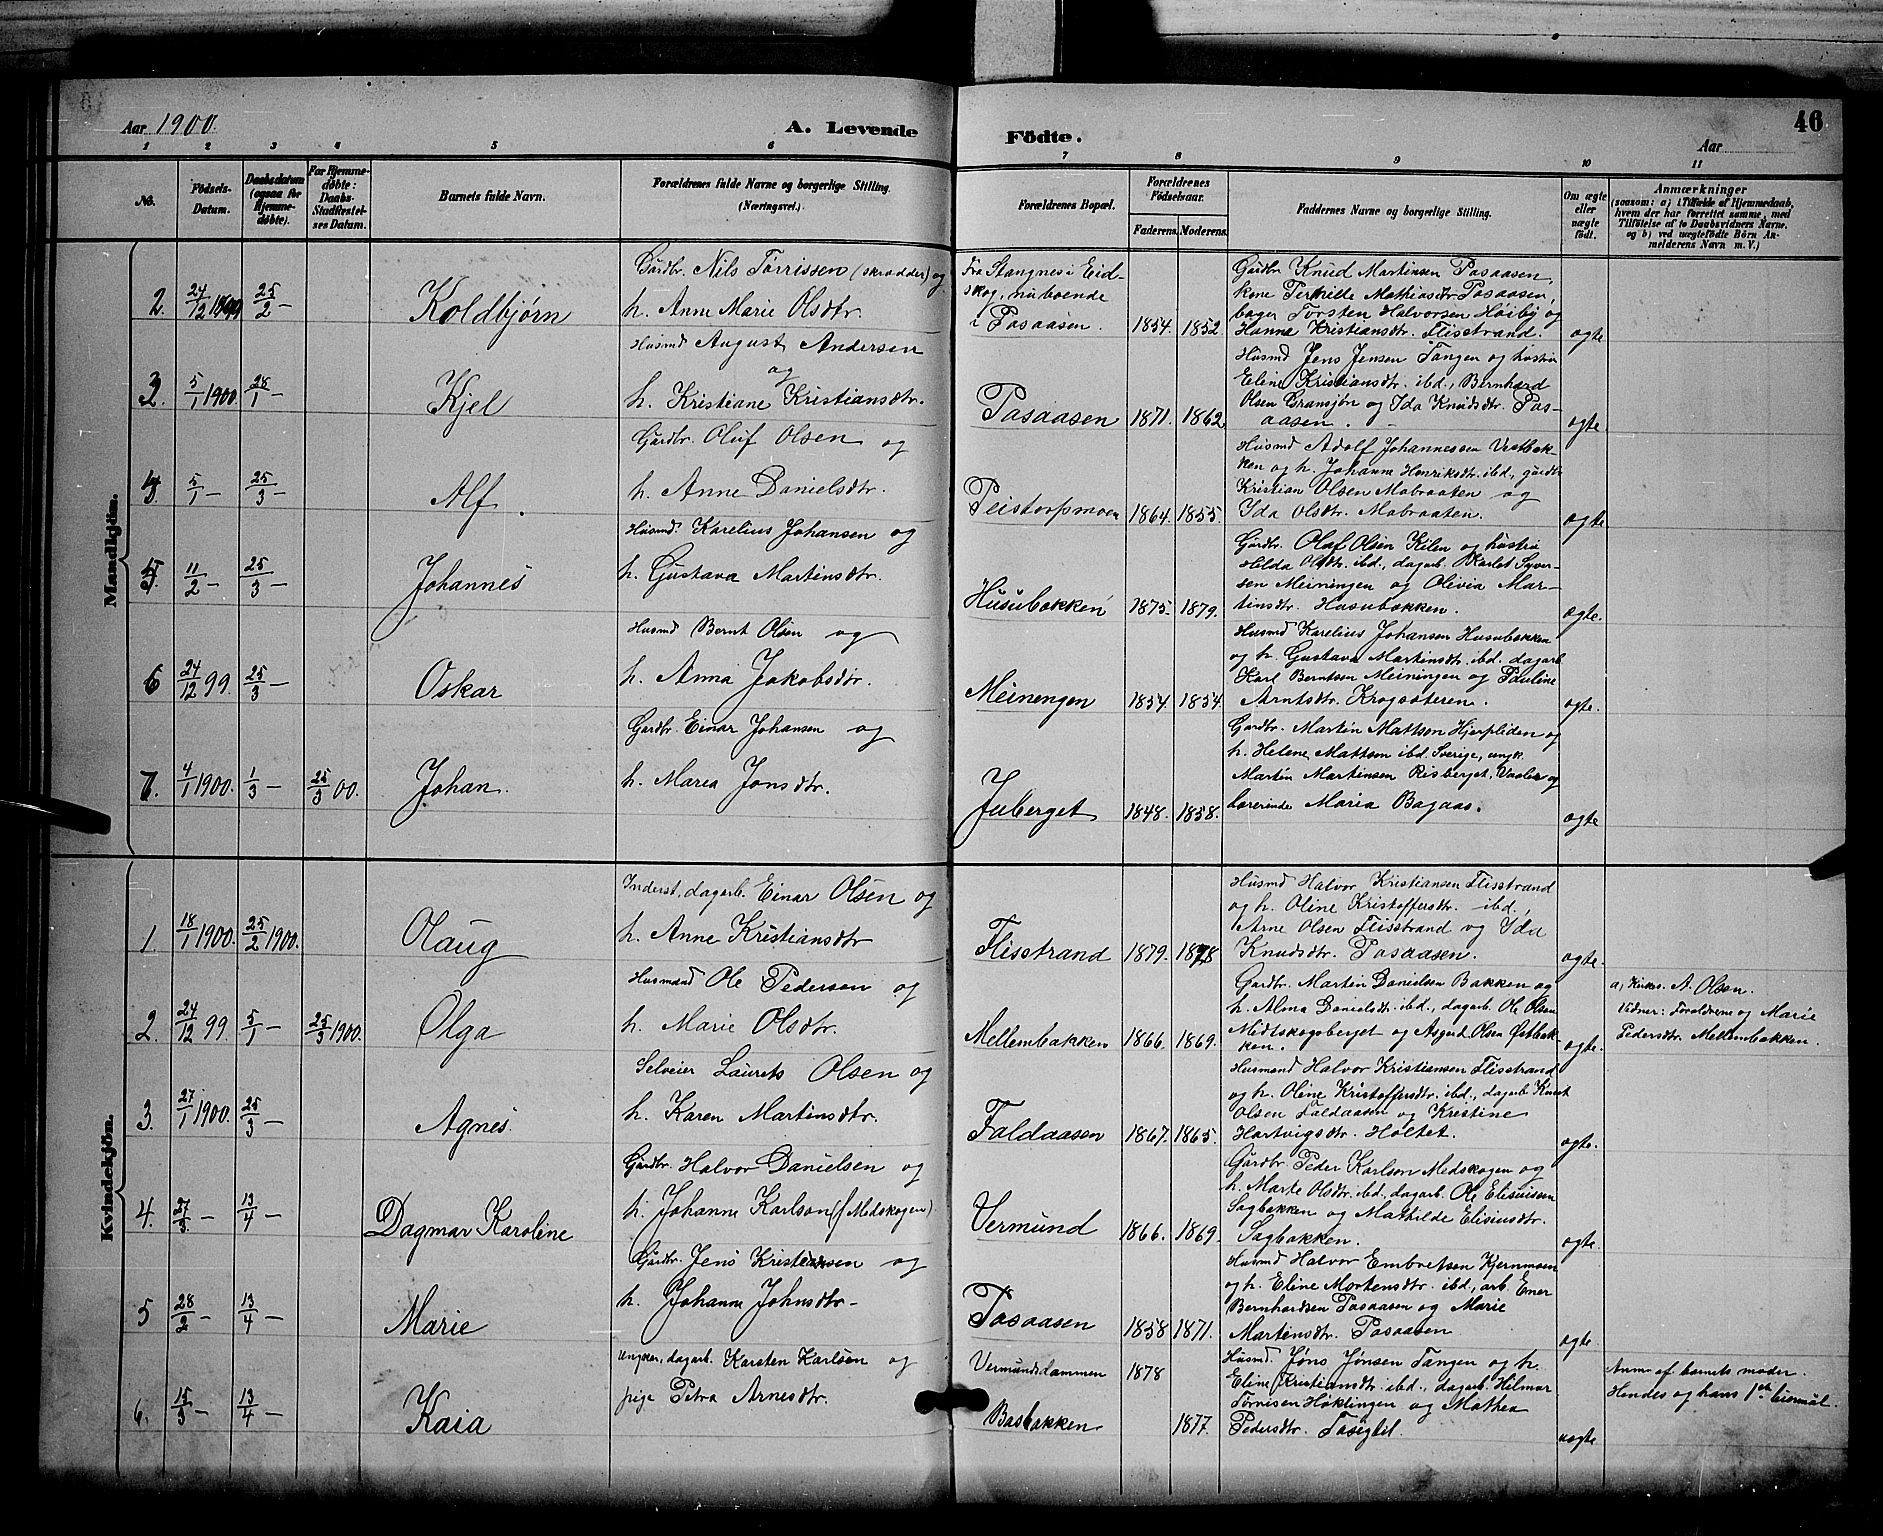 Aar 1900. A. Levende Födte. Aar 46
1 2 3 4 5 6 7 8 9 10 11
No. Födsels-Datum. Daabsdatum (ogsaa for Hjemme-döbte). For Hjemme-döbte: Daabs-Stadfæstelses Datum. Barnets fulde Navn. Forældrenes fulde Navne og borgerlige Stilling. (Næringsvei.) Forældrenes Bopæl. Forældrenes Födselsaar. Faderens. Moderens. Faddernes Navne og borgerlige Stilling. Om ægte eller uægte födt. Anmærkninger (saasom: a) i Tilfælde af Hjemmedaab, hvem der har forrettet samme, med Tilföielse af to Daabsvidners Navne. og b) ved uægtefödte Börn Anmelderens Navn m. V.)
Mandkjön.
2. 24/12 1899 25/2 — Koldbjørn
Gårdbr. Nils Tørrissen (skrædder) og
h. Anne Marie Olsdtr.
Fra Stangnes i Eid-
skog, nuboende
i Pasaasen. 1854. 1852.
Gårdbr Knud Martinsen Pasaasen,
kone Pernille Mathiasdtr Pasaasen,
Torsten Halvorsen Høiby og
Hanna Kristiansdtr. Flisstrand. ægte
3. 5/1 1900. 28/1 — Kjel
Husmd August Andersen
og
h. Kristiane Kristiansdtr.
Pasaasen 1871. 1862
Husmd Jens Jensen Tangen og hustru
Eline Kristiansdtr. ibd., Bernhard
Olsen Gransjøn og Ida Knudsdtr. Pas-
aasen. ægte.
4. 5/1 — 25/3 — Alf.
Gårdbr. Oluf Olsen og
h. Anne Danielsdtr.
Peistorpmoen 1864. 1855.
Husmd Adolf Johannessen Vestbak-
ken og h. Johanne Henriksdtr. ibd., gårdbr
Kristian Olsen Mobraaten og
Ida Olsdtr. Mobraaten. ægte
5. 11/2 — 25/3 — Johannes
Husmd. Karelius Johansen og
h. Gustava Martinsdtr.
Husubakken 1875. 1879.
Gårdbr. Olaf Olsen Kilen og hustru
Hilda Olsdtr. ibd., dagarb. Karlot Syver-
sen Meiningen og Olivia Mar-
tinsdtr. Husubakken. ægte.
6 24/12 99. 25/3 — Oskar
Husmd Bernt Olsen og
h. Anna Jakobsdtr.
Meinengen 1854. 1854.
Husmd Karelius Johansen Husubakken
og h. Gustava Martinsdtr. ibd. dagarb.
Karl Berntsen Meiningen og Pauline
Arntsdtr. Krogsæteren. ægte.
7. 4/1 1900. 1/3 — 25/3 00. Johan.
Gardbr. Einar Johansen og
h. Maria Jonsdtr.
Juberget 1848. 1858.
Gardbr. Martin Mattson Hjerpliden og
h. Helene Mattson ibd. Sverige, ungk.
Martin Martinsen Risberget, Vaaler og
lærerinde Maria Bagaas. ægte
Kvindekjön.
1. 18/1 1900. 25/2 1900. Olaug
Inderst, dagarb. Einar Olsen og
h. Anne Kristiansdtr
Flisstrand 1879. 1878
Husmd Halvor Kristiansen Flisstrand
og h. Oline Kristoffersdtr. ibd.,
Arne Olsen Flisstrand og Ida
Knudsdtr. Pasaasen. ægte.
2. 24/12 99. 5/1 — 25/3 1900. Olga
Husmand Ole Pedersen og
h. Marie Olsdtr.
Mellembakken 1866. 1869.
Gårdbr. Martin Danielsen Bakken og
h. Alma Danielsdtr. ibd., dagarb. Ole Olsen
Midtskogsberget og Asgud Olsen Østbak-
ken. ægte.
a, Kirkes. A. Olsen.
Vidner: Forældrene og Marie
Pedersdtr. Mellembakken.
3. 27/1 1900. 25/3 — Agnes.
Selveier Laurets Olsen og
h. Karen Martinsdtr.
Faldaasen 1867. 1865
Husmand Halvor Kristiansen Flisstrand
og h. Oline Kristoffersdtr. ibd., dagarb Knut
Olsen Faldaasen og Kristine
Hartvigsdtr. Holtet. ægte.
4. 27/3 — 13/4 — Dagmar Karoline
Gårdbr. Halvor Danielsen og
h. Johanne Karlson (f Medskogen)
Vermund 1866. 1869.
Gårdbr Peder Karlson Medskogen og
h. Marte Olsdtr. ibd., dagarb. Ole Eliseussen
Sagbakken og Mathilde Eliseusdtr.
Sagbakken. ægte.
5 28/2 — 13/4 — Marie
Gårdbr. Jens Kristiansen og
h. Johanne Johnsdtr.
Pasaasen 1858 1871.
Husmd Halvor Embretsen Kjernmoen
og h. Eline Mortensdtr. ibd., arb. Ener
Bernhardsen Pasaasen og Marie
Martinsdtr. Pasaasen ægte.
6. 15/3 — 13/4 — Kaia
Ungkar, dagarb. Karsten Karlsen og
pige Petra Arnesdtr.
Vermundsdammen 1878
Basbakken 1877.
Husmd. Jøns Jønsen Tangen og h.
Eline Kristiansdtr. ibd., dagarb. Hilmar
Tørrisen Høktingen og Mathea
Pedersdtr. uægte
Anm. af barnets moder.
Hendes og hans 1ste leiermål.